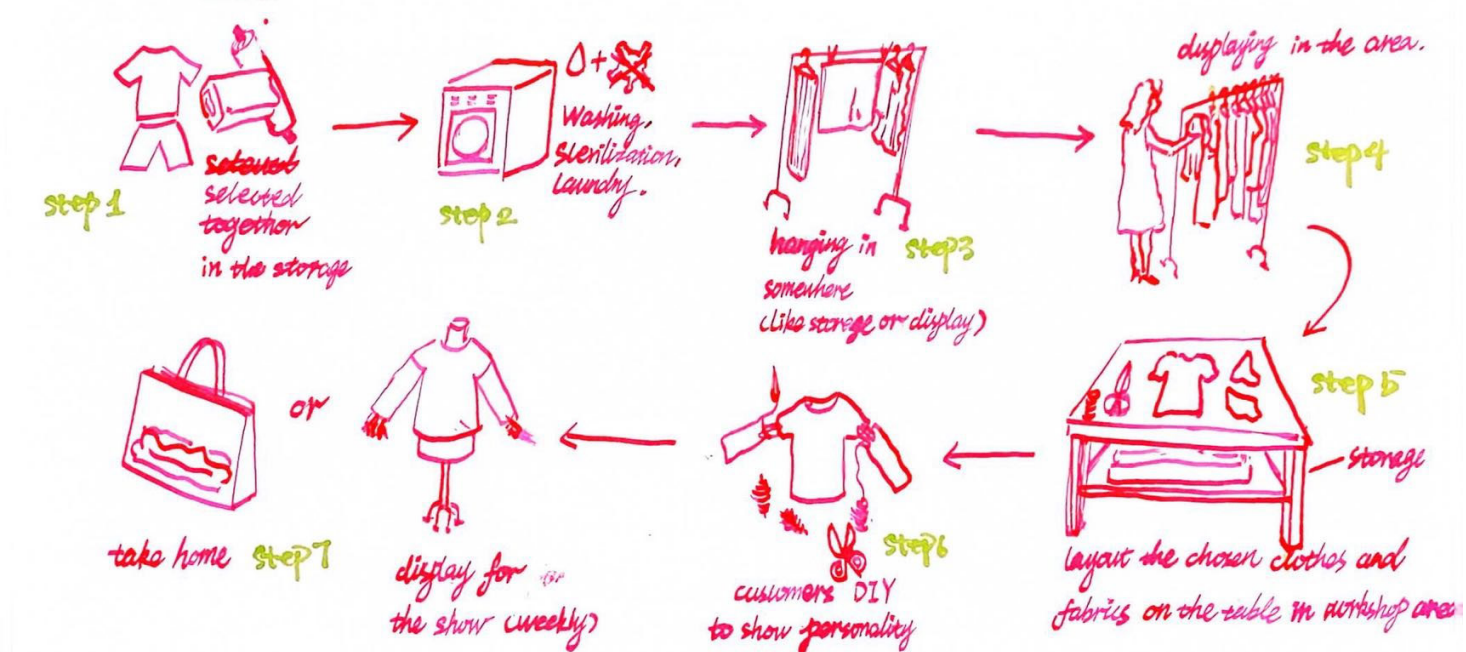 step 1
selected
together
in the storage
step 2
Washing,
Sterilization,
Laundry.
step 3
hanging in
somewhere
(like storage or display)
displaying in the area.
step 4
step 5
storage
layout the chosen clothes and
fabrics on the table in workshop area
step 6
customers DIY
to show personality
display for
the show (weekly)
or
take home
step 7